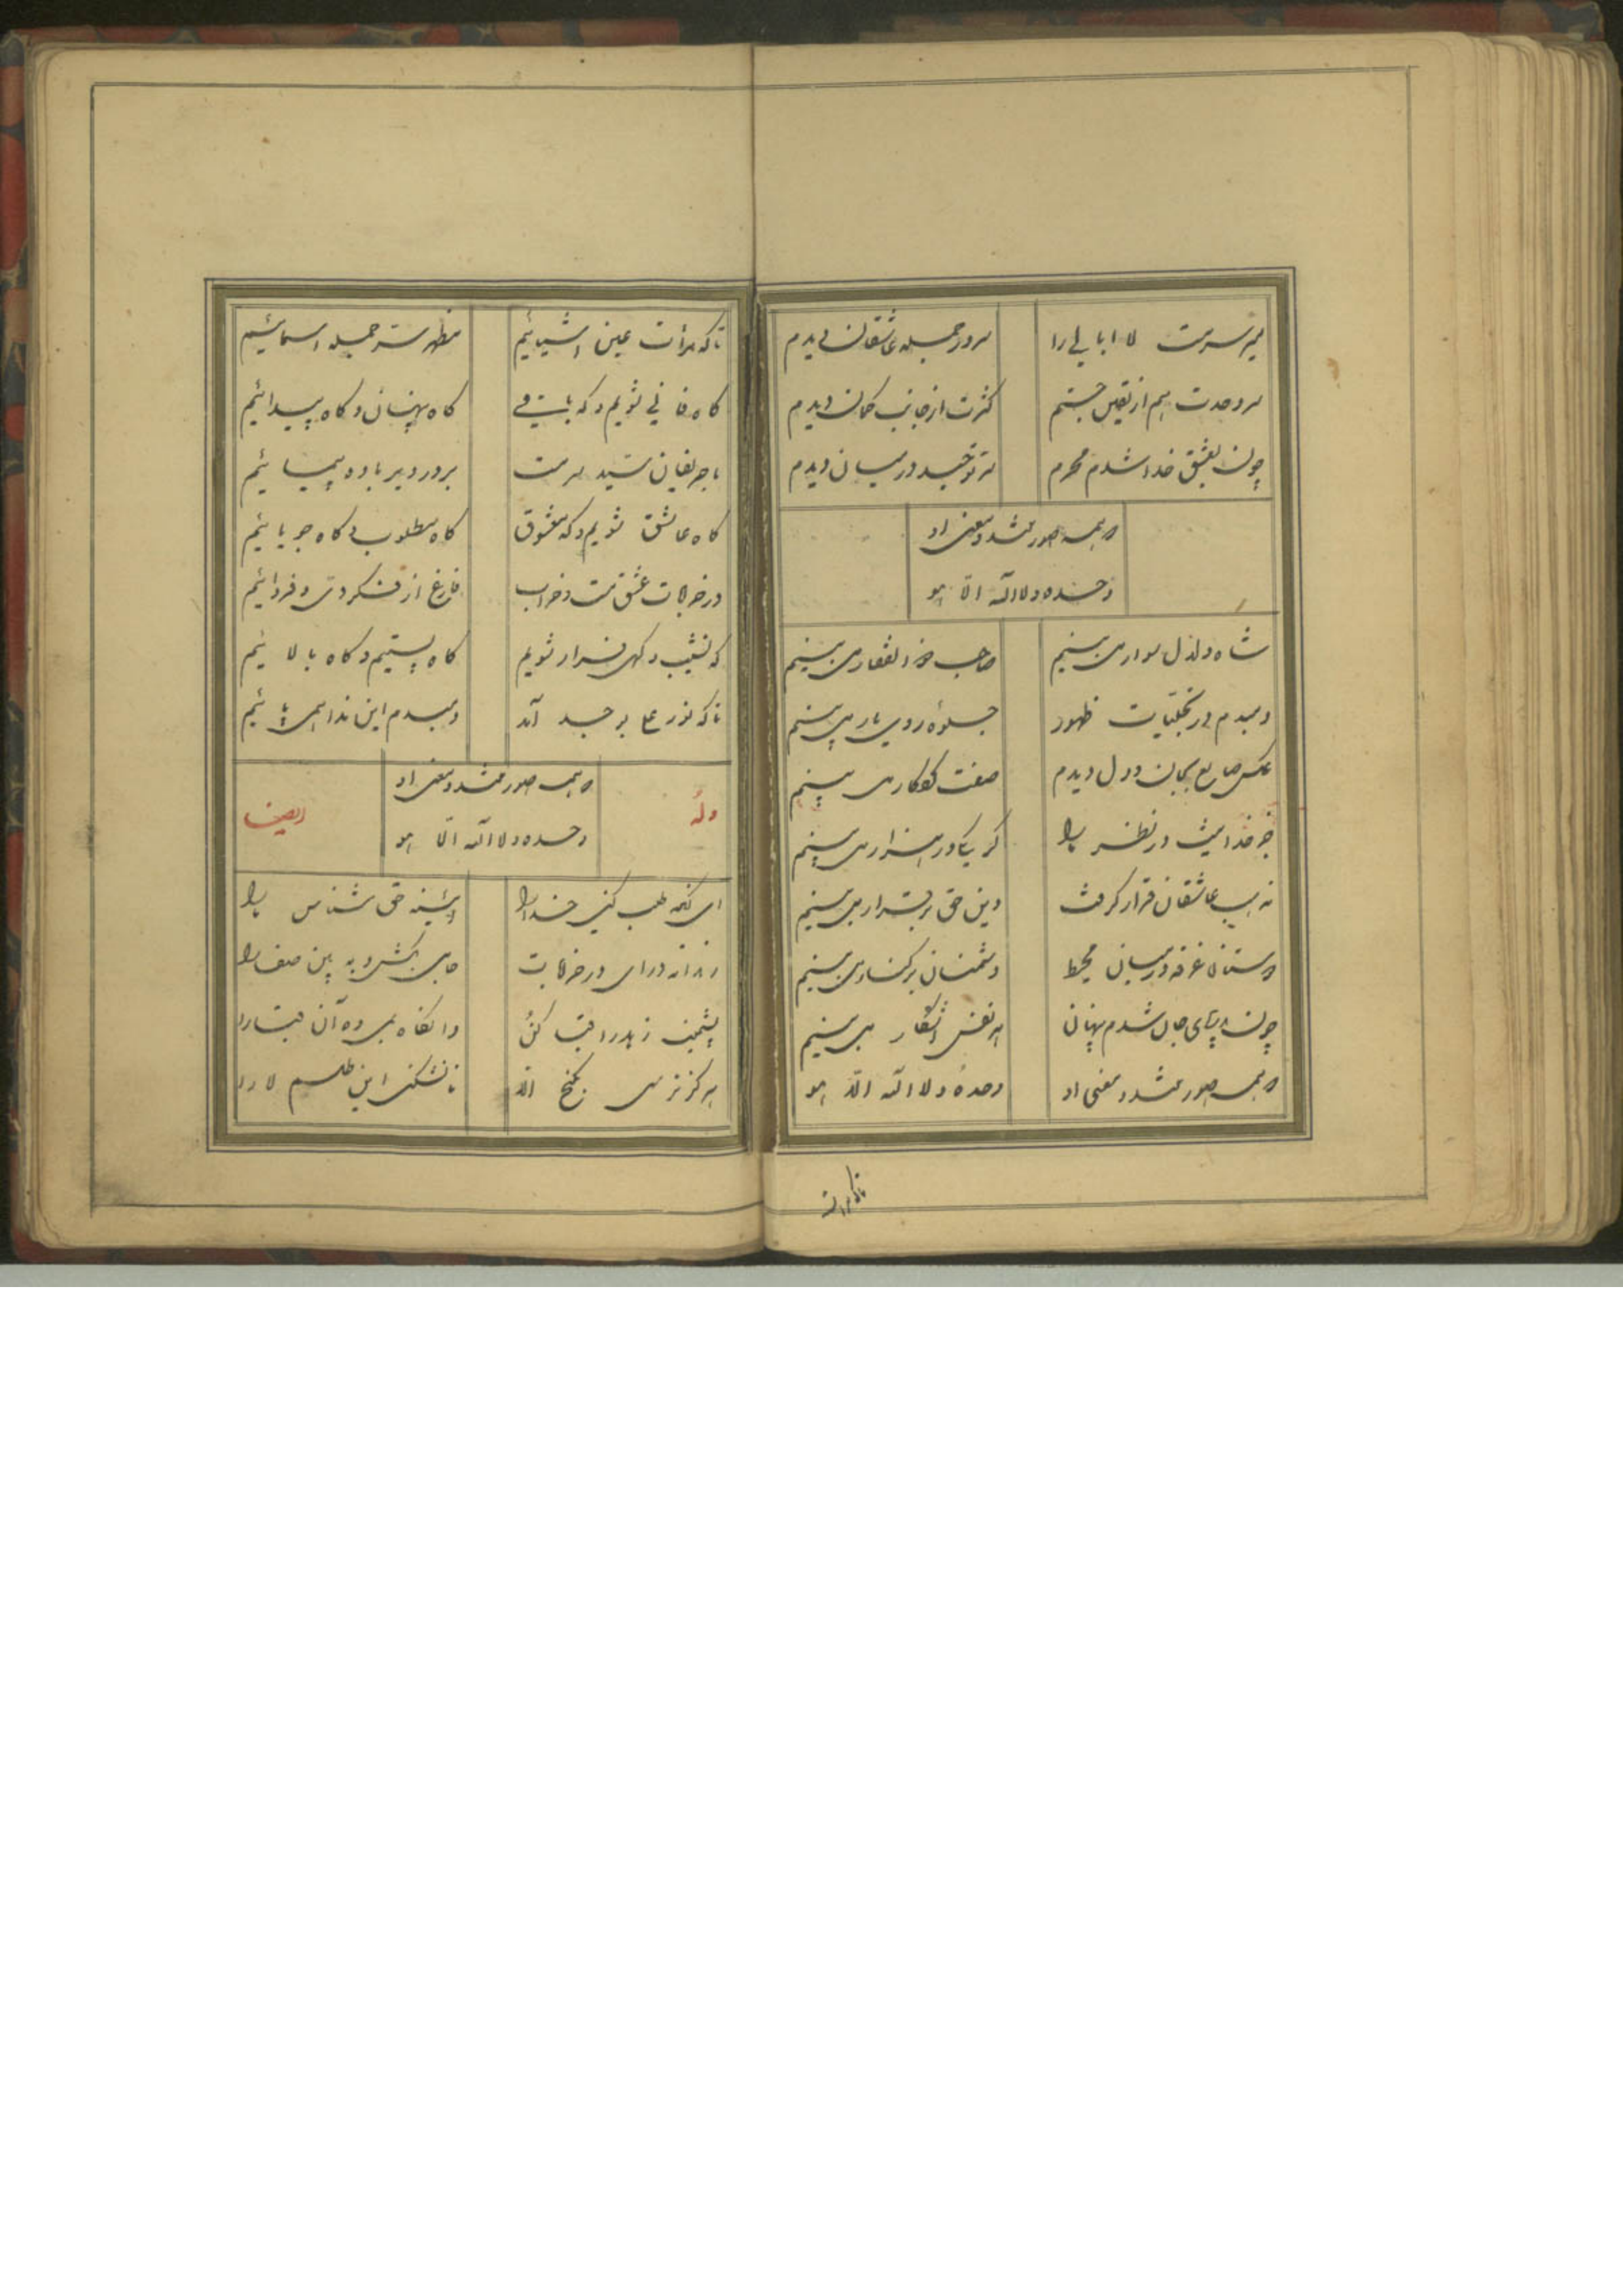 میر سرمست لا ابالی را
سرور جمله عاشقان دیدم
سر وحدت هم از یقین جستم
کثرت از جانب کمان دیدم
چون بعشق خدا شدم محرم
سر توحید در میان دیدم
که همه صورتند و معنی او
وحده و لا اله الا هو
شاه دلدل سوار می بینیم
صاحب ذو الفقار می بینیم
دمبدم در تجلیات ظهور
جلوه روی یار می بینیم
عکس صانع بجان و دل دیدم
صنعت کردکار می بینیم
جز خدا نیست در نظر ما را
کر یکی ور هزار می بینیم
مذهب عاشقان قرار کرفت
دین حق برقرار می بینیم
دوستان غرقه در میان محیط
دشمنان بر کنار می بینیم
چون
شدم پنهان
هر نفس آشکار می بینیم
که همه صورتند و معنی او
وحده و لا اله الا هو
تا که مرآت
تا که مرآت عین اشیائیم
مظهر سر جمله اسمائیم
کاه فانی شویم و که باقی
کاه پنهان و کاه پیدائیم
با حریفان سید سرمست
بر در دیر باده پیمائیم
کاه عاشق شویم و که معشوق
کاه مطلوب و کاه جویائیم
در خرابات عشق مست و خراب
فارغ از فکر دی و فردائیم
که نشیب و کهی فراز شویم
کاه پستیم و کاه بالائیم
تا که نور علی بوجد آمد
دمبدم این ندا همی پائیم
که همه صورتند و معنی او
وحده و لا اله الا هو
وله ایضا
ای آنکه طلب کنی خدا را
آیینه حق شناس ما را
رندانه درای در خرابات
جامی بکش و ببین صفا را
پشمینه زهد را قبا کن
وانکاه بمی ده آن قبا را
هرکز نرسی بکنج الا
تا نشکنی این طلسم لا را